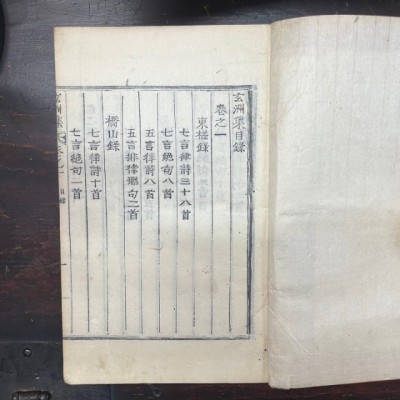 玄洲集目錄
卷之一
東槎錄
七言律詩三十八首
七言絶句八首
五言律詩八首
五言排律聯句二首
橋山錄
七言律詩十首
七言絶句一首
玄洲集
目錄
一